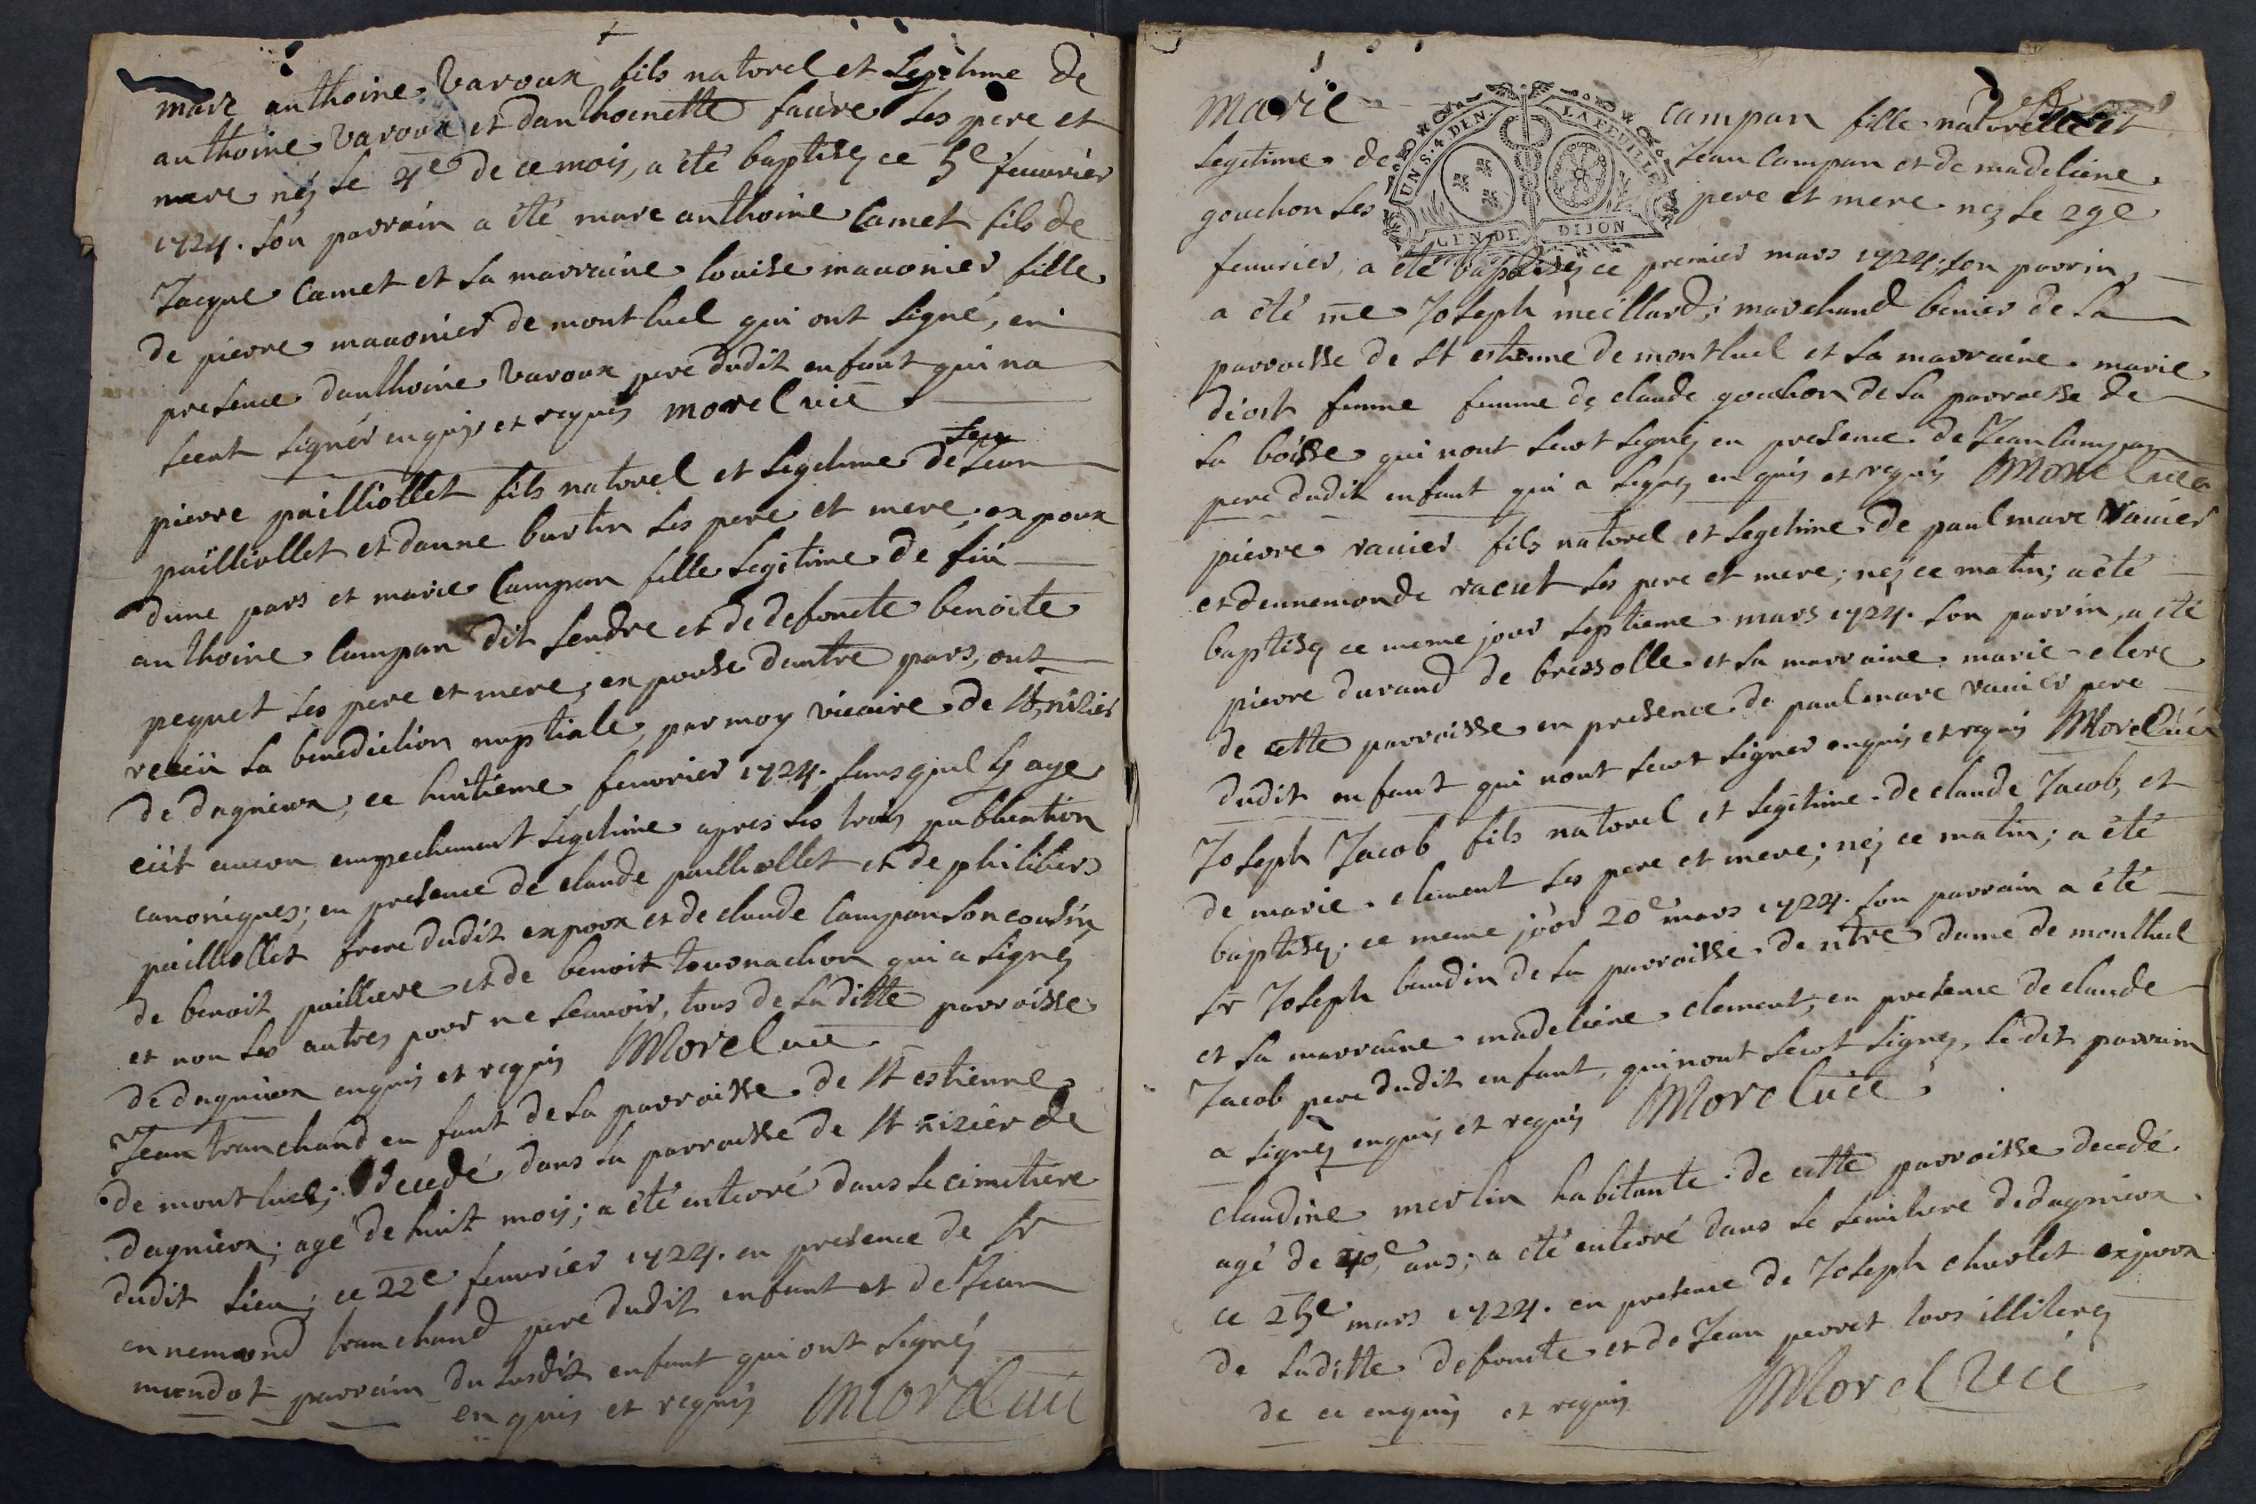 marc anthoine varoux fils naturel et legitime de
anthoine varoux et danthoenette faure ses pere et
mere néj le 4e de ce mois, a été baptisej ce 5e feuvrier
1724. son parrain a été marc anthoine Camet fils de
Jacque Camet et sa marraine louise mauonier fille
de pierre mauonier de montluel qui ont signé, en
presence danthoine varoux pere dudit enfant qui na
sceut signér enquis et requis morel vic
pierre pailliollet fils naturel et legitime de feu Jean
pailliollet et danne bartin ses pere et mere; expoux
dune pars et marie Campan fille legitime de fiu
anthoine Campan dit sendre et de defoncte benoite
pequet ses pere et mere, expouse dautre pars, ont
receü la benediction nuptiale, par moy vicaire de st nizier
de dagnieux, ce huitieme feuvrier 1724. sans quil y aye
eüt aucun empechement legitime apres les trois publication
canoniques; en presence de claude pailliollet et de philibers
pailliollet frere dudit expoux et de claude Campan son cousin
de benoit pailliere et de benoit tournachon qui a signéj
et non les autres pour ne scauoir, tous de laditte parroisse
de dagnieux enquis et requis Morel vic
Jean tranchand enfant de la parroisse de st estienne
de montluel; decedé dans la parroisse de st nizier de
dagnieux; agé de huit mois; a été enterré dans le cimetiere
dudit lieu; ce 22e feuvrier 1724. en presence de sr
ennemond tranchand pere dudit enfant et de Jean
mundot parrain du susdit enfant qui ont signéj
enquis et requis Morel vic
Marie Campan fille naturelle et
legitime de Jean Campan et de madeleine
gouchon ses pere et mere nej le 29e
UN S. 4 DEN. LA FEUILLE
GEN DE DIJON
feuurier, a été baptisej ce premier mars 1724; son parrin
a été me Joseph meillard; marchand benier de la
parroisse de st estienne de montluel et sa marraine marie
diost femme femme de claude gouchon de la parroisse de
la boisse qui nont sceut signej en presence de Jean Campan
pere dudit enfant qui a signej enquis et requis Morel vic
pierre ravier fils naturel et legitime de paul marc Ravier
et dennemonde racut ses pere et mere; néj ce matin; a été
baptisej ce meme jour septieme mars 1724. son parrin, a été
pierre durand de bressolle et sa marraine marie clerc
de cette parroisse en presence de paul marc ravier pere
dudit enfant qui nont sceut signer enquis et requis Morel vic
Joseph Jacob fils naturel et legitime de claude Jacob, et
de marie clement ses pere et mere; néj ce matin; a été
baptisej; ce meme jour 20e mars 1724. son parrain a été
sr Joseph baudin de la parroisse de ntre dame de montluel
et sa marraine madeleine clement, en presence de claude
Jacob pere dudit enfant, qui nont sceut signej, ledit parrain
a signej enquis et requis Morel vic
claudine merlin habitante de cette parroisse decedé
agé de 40e ans; a été enterré dans le semitiere de dagnieux
ce 25e mars 1724. en presence de Joseph charlet expoux
de laditte defoncte et de Jean perret tous illiterej
de ce enquis et requis Morel vic